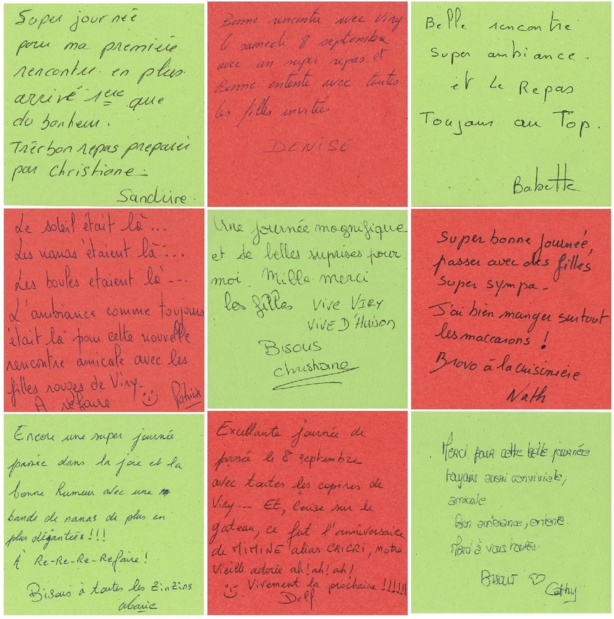 Super journée
pour ma première
rencontre en plus
arrivé 1ere que
du bonheur.
Très bon repas préparée
par Christiane
Sandrine.
Bonne rencontre avec Viry
le samedi 8 septembre
avec un super repas et
Bonne entente avec toutes
les filles invitées
DENISE
Belle rencontre
Super ambiance.
et le Repas
Toujours au Top.
Babette
Le soleil était là...
Les nanas étaient là...
Les boules étaient là...
L'ambiance comme toujours
était là pour cette nouvelle
rencontre amicale avec les
filles rouges de Viry.
A refaire
Patricia
Une journée magnifique
et de belles suprises pour
moi. Mille merci
les filles VIVE VIRY
VIVE D'HUISON
Bisous
Christiane
Super bonne journée,
passer avec des filles
super sympa.
J'ai bien manger surtout
les maccarons !
Bravo à la cuisinière
Nath
Encore une super journée
passée dans la joie et la
bonne humeur avec une
bande de nanas de plus en
plus dégantées!!!
À Re-Re-Re-Refaire!
Bisous à toutes les zinzins
Excellante journée de
passée le 8 septembre
avec toutes les copines de
Viry... ET, Cerise sur le
gateau, ce fut l'anniversaire
de MIMINE alias CRICRI, notre
vieille adorée ah! ah! ah!
Vivement la prochaine !!!!!!
Delf
Merci pour cette belle journée
toujours aussi conviviale,
amicale.
Bon ambiance, entente.
Merci à vous toutes.
Bisous
Cathy